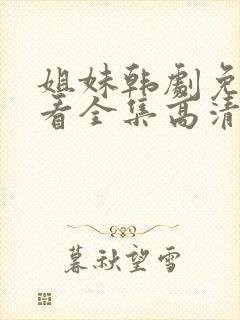 姐妹韩劇免
看全集高清
暮秋望雪